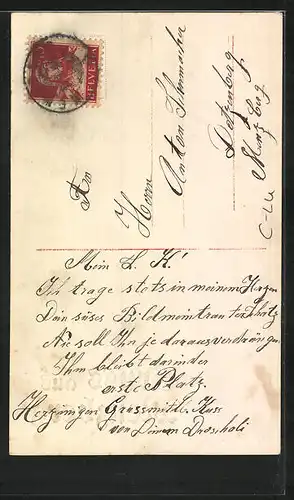 HELVETIA
An
Herrn
Anton Schumacher
C-Lu
Mein L. H!
Ich trage stets in meinem Herzen
Dein süses Bild mein trauter Schatz
Nie soll Ihn je daraus verdrängen
Ihm bleibt darin der
erste Platz.
Herzinigen Gruss mitte. Kuss
von Deinem